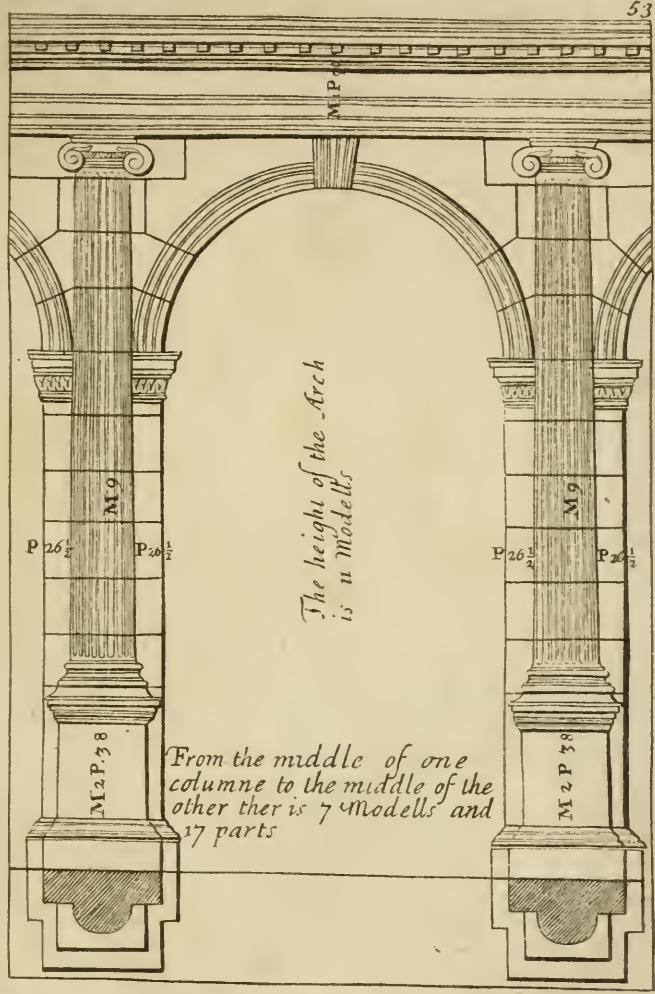 53
The height of the Arch
is 11 Modells
M 9
M 9
P 26 1/2
P 26 1/2
P 26 1/2
P 26 1/2
M 2 P. 38
M 2 P 38
From the middle of one
columne to the middle of the
other ther is 7 Modells and
17 parts